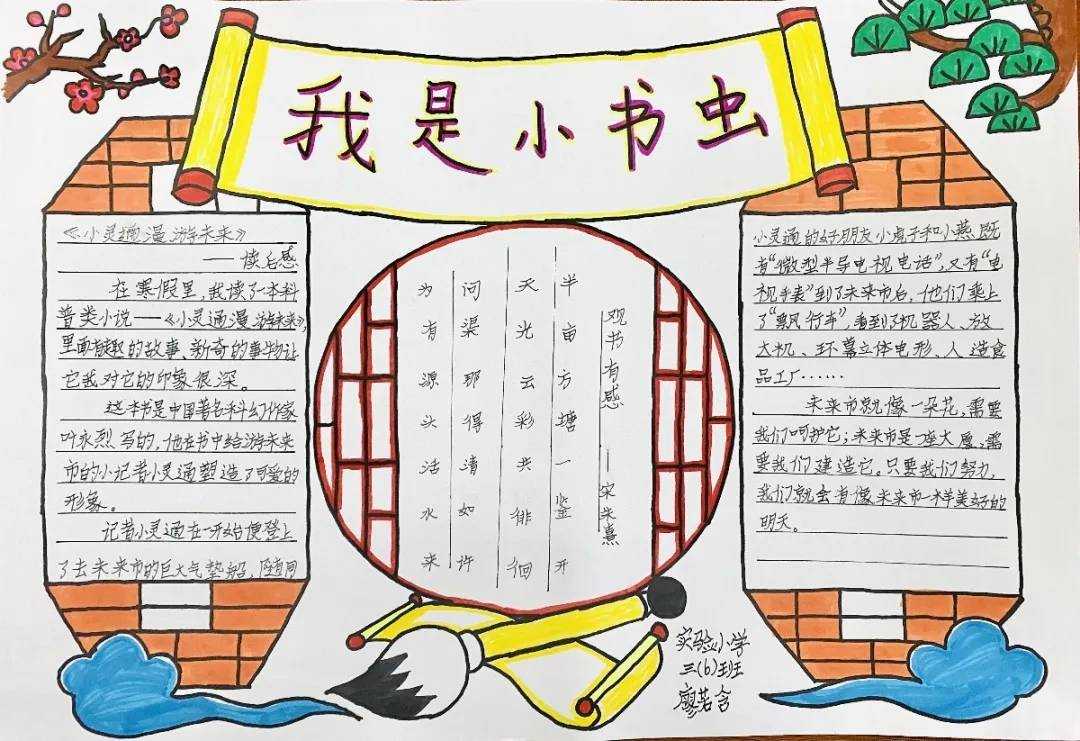 我是小书虫
《小灵通漫游未来》
——读后感
在寒假里,我读了一本科
普类小说——《小灵通漫游未来》,
里面有趣的故事、新奇的事物让
它我对它的印象很深。
这本书是中国著名科幻作家
叶永烈写的,他在书中给游未来
市的小记者小灵通塑造了可爱的
形象。
记者小灵通在一开始便登上
了去未来市的巨大气垫船,
观书有感——宋朱熹
半亩方塘一鉴开
天光云彩共徘徊
问渠耶得清如许
为有源头活水来
小灵通的好朋友小虎子和小燕既
有“微型半导电视电话”,又有“电
视手表”到了未来市后,他们乘上
了“飘行车”,看到了机器人、放
大机、环幕立体电形、人造食
品工厂……
未来市就像一朵花,需要
我们呵护它;未来市是一座大厦,需
要我们建造它。只要我们努力,
我们就会有像未来市一样美好的
明天。
实验小学
三(6)班
廖若含